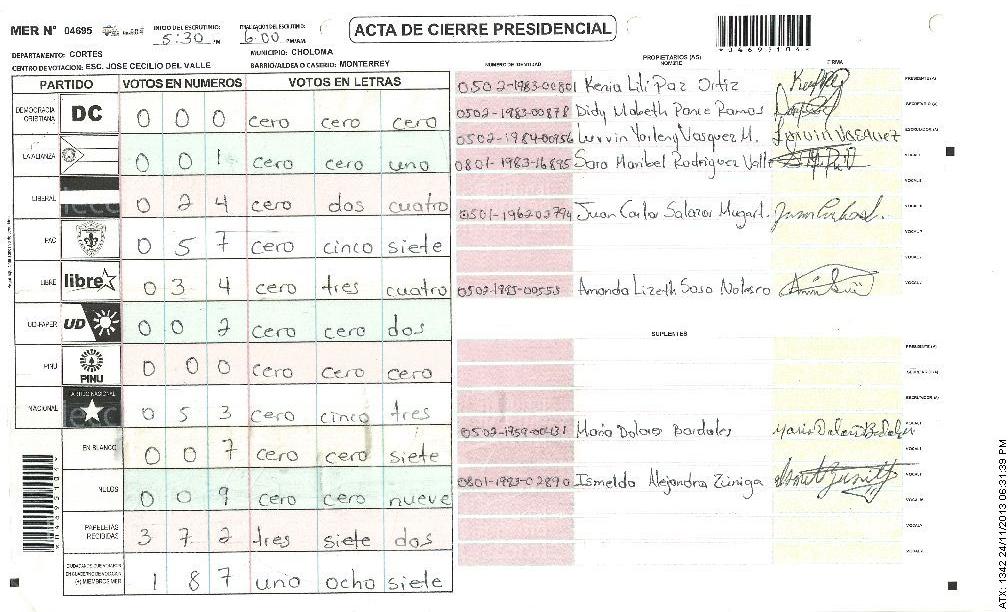 MER N° 04695
INICIO DEL ESCRUTINIO: 5:30 PM
FINALIZACION DEL ESCRUTINIO: 6:00 PM/AM
ACTA DE CIERRE PRESIDENCIAL
*04695104*
DEPARTAMENTO: CORTES
MUNICIPIO: CHOLOMA
CENTRO DE VOTACION: ESC. JOSE CECILIO DEL VALLE
BARRIO/ALDEA O CASERIO: MONTERREY
PARTIDO VOTOS EN NUMEROS VOTOS EN LETRAS
DEMOCRACIA CRISTIANA DC 0 0 0 cero cero cero
LA ALIANZA 0 0 1 cero cero uno
LIBERAL 0 2 4 cero dos cuatro
PAC 0 5 7 cero cinco siete
LIBRE libre 0 3 4 cero tres cuatro
UD-FAPER UD 0 0 2 cero cero dos
PINU PINU 0 0 0 cero cero cero
NACIONAL 0 5 3 cero cinco tres
EN BLANCO 0 0 7 cero cero siete
NULOS 0 0 9 cero cero nueve
PAPELETAS RECIBIDAS 3 7 2 tres siete dos
(+) MIEMBROS MER 1 8 7 uno ocho siete
NUMERO DE IDENTIDAD PROPIETARIOS (AS) NOMBRE FIRMA
0502-1983-00801 Kenia Lili Paz Ortiz PRESIDENTE(A)
0502-1983-00878 Didy Mabeth Ponce Ramos SECRETARIO(A)
0502-1984-00956 Vasquez M. ESCRUTADOR(A)
0801-1983-16895 Sara Maribel Rodriguez Valle VOCAL I
0501-1962-02794 Juan Carlos Salazar
0502-1985-00555 Amanda Lizeth Soso
SUPLENTES
PRESIDENTE(A)
SECRETARIO(A)
ESCRUTADOR(A)
0502-1959-00431 Maria Dolores Bardales VOCAL I
0801-1983-02890 Ismelda Alejandra Zúniga
ATX: 1342 24/11/2013 06:31:39 PM